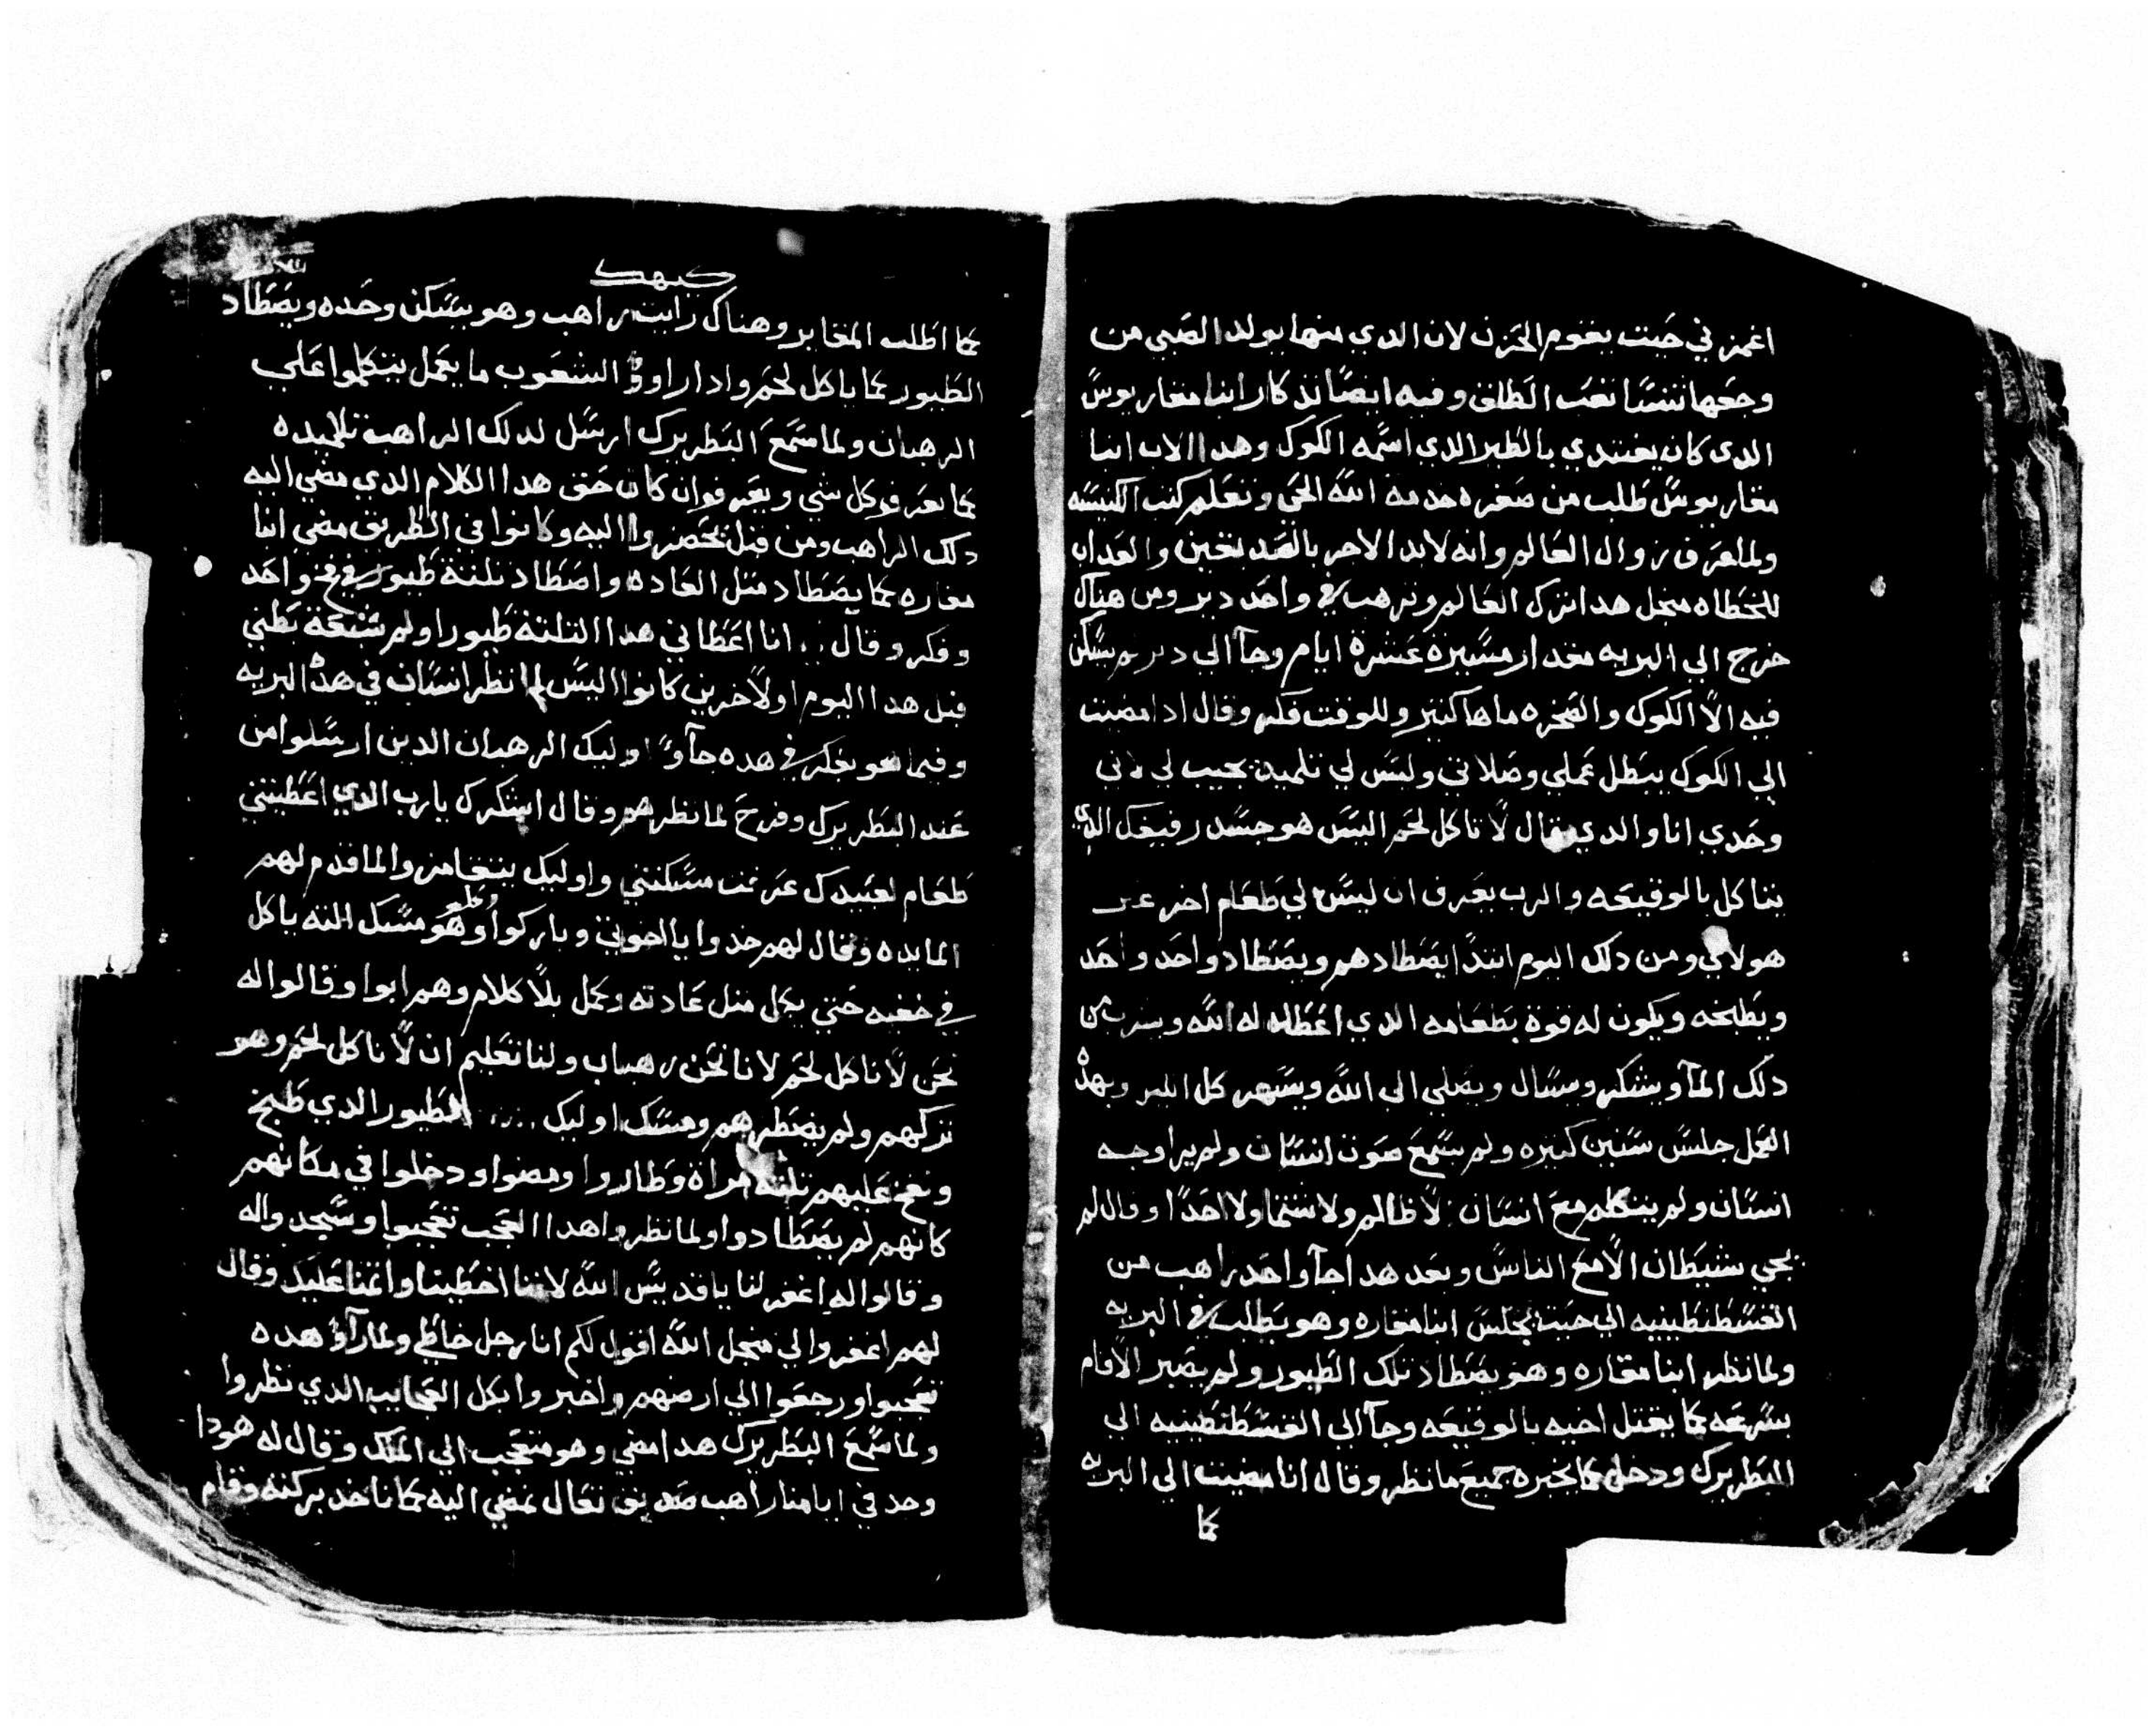 اغمز في حيت يقوم الحزن لان الدي منها يولد الصبي من
وجعها تنسا تعب الطلق وفيه ايضا تدكار انبا مقاريوس
الدي كان يعتدي بالطير الدي اسمه الكوك وهدا الاب انبا
مقاريوس طلب من صغره خدمة الله الحي وتعلم كتب الكنيسه
ولما عرف زوال العالم وانه لابد الاجر بالصديقين والعداب
للخطاه منجل هدا ترك العالم وترهب في واحد دير ومن هناك
خرج الي البريه مقدار مسيرة عشرة ايام وجآ الي دير لم يسكن
فيه الا الكوك والصخره ماها كتير وللوقت فكر وقال ادا مضيت
الي الكوك يبطل عملي وصلاتي وليس لي تلميد يجيب لي لاني
وحدي انا والدي يقال لا تاكل لحم اليس هو جسد رفيقك الدي
يتاكل بالوقيعه والرب يعرف ان ليس لي طعام اخر غير
هولاي ومن دلك اليوم ابتدا يصطادهم ويصطاد واحد واحد
ويطبخه ويكون له قوة بطعامه الدي اعطاه له الله ويشرب من
دلك المآ ويشكر ويسال ويصلي الي الله ويسهر كل الليل وبهده
العمل جلس سنين كتيره ولم يسمع صوت انسان ولم يرا وجه
انسان ولم يتكلم مع انسان لا ظالم ولا شتما ولا احدا وقال لم
يجي شيطان الا مع الناس وبعد هدا جآ واحد راهب من
القسطنطينيه الي حيت يجلس انبا مقاره وهو يطلب في البريه
ولما نظر انبا مقاره وهو يصطاد تلك الطيور ولم يصبر الا قام
بسرعه كما يقتل اخيه بالوقيعه وجآ الي القسطنطينيه الي
البطريرك ودخل كما يخبره جميع ما نظر وقال انا مضيت الي البريه
كما
كيهك
كما اطلب المقابر وهناك رايت راهب وهو يسكن وحده ويصطاد
الطيور كما ياكل لحم وادا راوو الشعوب ما يعمل يتكلموا علي
الرهبان ولما سمع البطريرك ارسل لدلك الراهب تلاميده
كما يعرفو كل شي ويعرفو ان كان حق هدا الكلام الدي مضي اليه
دلك الراهب ومن قبل يحضروا اليه وكانوا في الطريق مضي انبا
مقاره كما يصطاد متل العاده واصطاد تلتة طيور في فخ واحد
وفكر وقال انا اعطاني هدا التلتة طيورا ولم شبعة بطني
قبل هدا اليوم اولاخرين كانوا اليس لم انظر انسان في هده البريه
وفيما هو يفكر في هده جآو اوليك الرهبان الدين ارسلوا من
عند البطريرك وفرح لما نظرهم وقال اشكرك يارب الدي اعطيتني
طعام لعبيدك عرفت مسكنتي واوليك يتغامزوا لما قدم لهم
المايده وقال لهم خدوا يا اخوتي وباركوا وهو مسك التته ياكل
في خفيه حتي يكل متل عادته وكمل بلا كلام وهم ابوا وقالوا له
نحن لا ناكل لحم لانا نحن رهبان ولنا تعليم ان لا ناكل لحم وهو
تركهم ولم يضطرهم ومسك اوليك الطيور الدي طبخ
ونفخ عليهم تلتة مراة وطاروا ومضوا ودخلوا في مكانهم
كانهم لم يصطادوا ولما نظروا هدا العجب تعجبوا وسجدوا له
وقالوا له اغفر لنا يا قديس الله لاننا اخطينا واتمنا عليك وقال
لهم اغفروا لي منجل الله اقول لكم انا رجل خاطي ولما رآوا هده
تعجبوا ورجعوا الي ارضهم واخبروا بكل العجايب الدي نظروا
ولما سمع البطريرك هدا مضي وهو متعجب الي الملك وقال له هودا
وجد في ايامنا راهب صديق تعال نمضي اليه كما ناخد بركته وقام